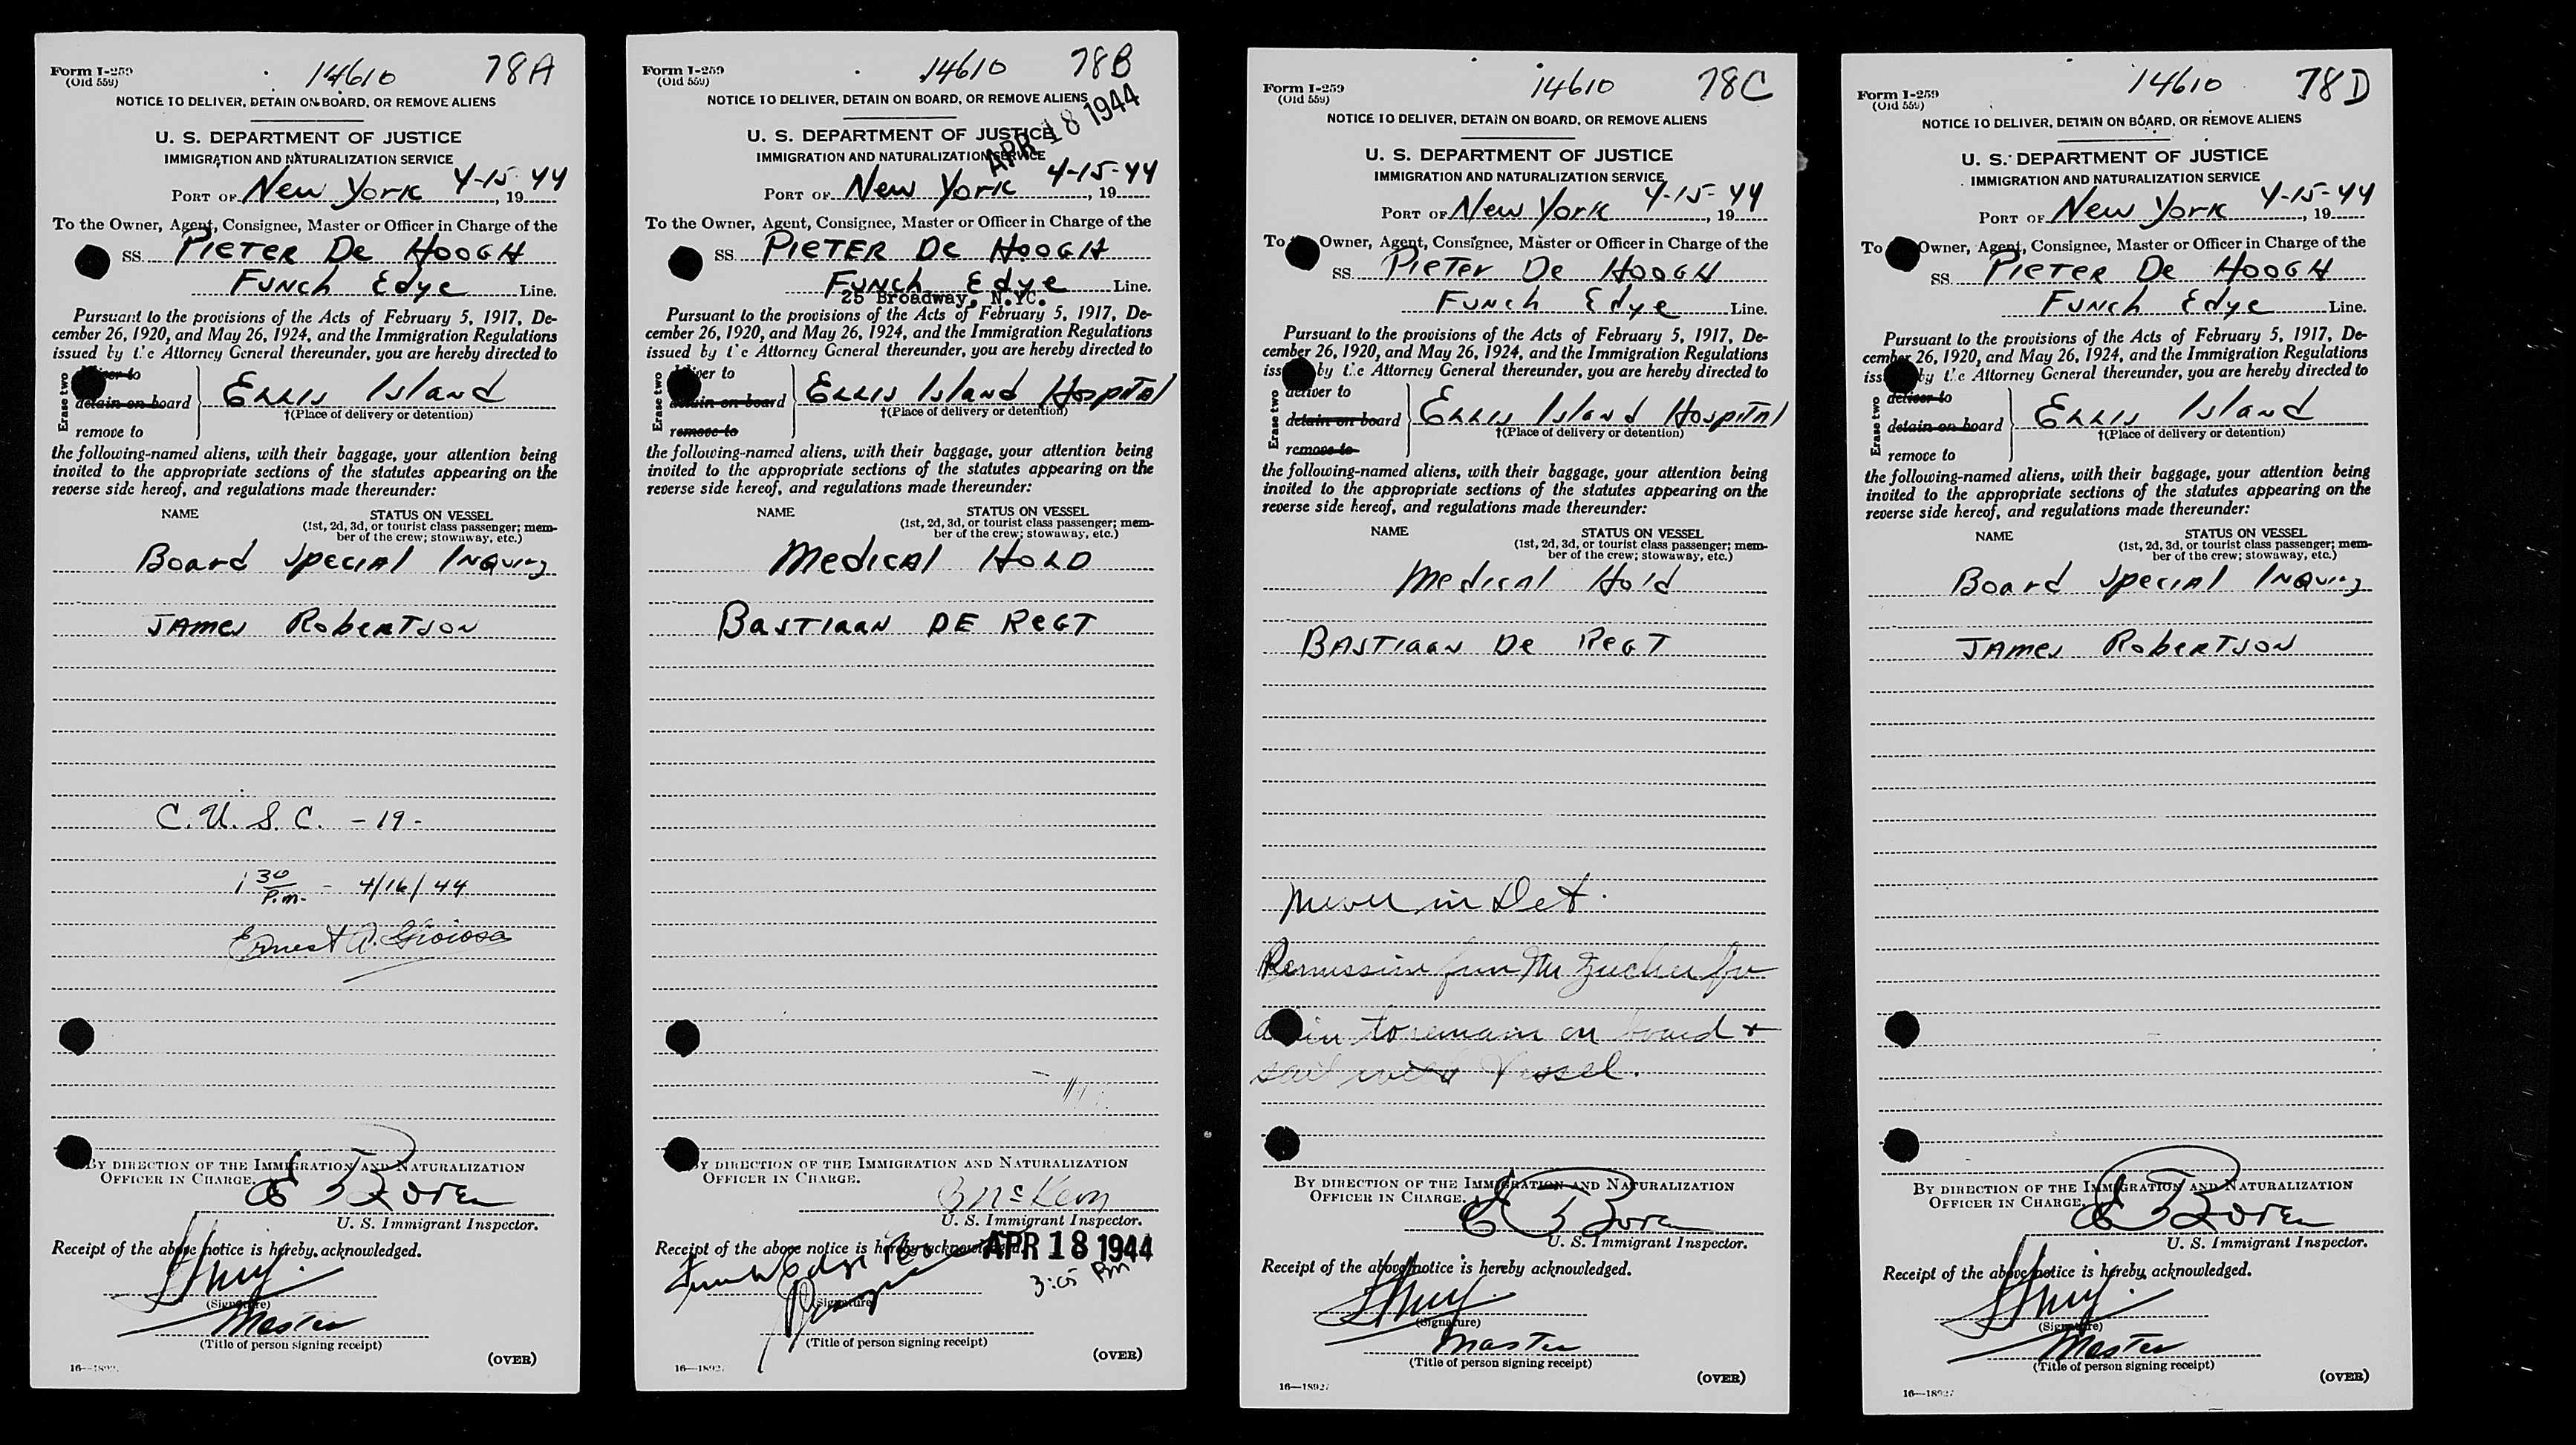 Form I-259
(Old 559)
14610
78A
NOTICE TO DELIVER, DETAIN ON BOARD, OR REMOVE ALIENS
U. S. DEPARTMENT OF JUSTICE
IMMIGRATION AND NATURALIZATION SERVICE
PORT OF New York 4-15-44, 19
To the Owner, Agent, Consignee, Master or Officer in Charge of the
SS. PIETER De HOOGH
FUNCh Edye Line.
Pursuant to the provisions of the Acts of February 5, 1917, De-
cember 26, 1920, and May 26, 1924, and the Immigration Regulations
issued by the Attorney General thereunder, you are hereby directed to
Erase two
deliver to
detain on board
remove to
ELLIS Island
†(Place of delivery or detention)
the following-named aliens, with their baggage, your attention being
invited to the appropriate sections of the statutes appearing on the
reverse side hereof, and regulations made thereunder:
NAME STATUS ON VESSEL
(1st, 2d, 3d, or tourist class passenger; mem-
ber of the crew; stowaway, etc.)
Board Special Inquiry
JAMES RobeRTSON
C. U. S. C. - 19 -
1 30 P.m. - 4/16/44
Ernest A. Gioiosa
BY DIRECTION OF THE IMMIGRATION AND NATURALIZATION
OFFICER IN CHARGE.
U. S. Immigrant Inspector.
Receipt of the above notice is hereby acknowledged.
(Signature)
Master
(Title of person signing receipt)
(OVER)
Form I-259
(Old 559)
14610
78B
NOTICE TO DELIVER, DETAIN ON BOARD, OR REMOVE ALIENS
APR 18 1944
U. S. DEPARTMENT OF JUSTICE
IMMIGRATION AND NATURALIZATION SERVICE
PORT OF New York 4-15-44, 19
To the Owner, Agent, Consignee, Master or Officer in Charge of the
SS. PIETER De HOOGH
FUNCh Edye Line.
25 Broadway, N.YC.
Pursuant to the provisions of the Acts of February 5, 1917, De-
cember 26, 1920, and May 26, 1924, and the Immigration Regulations
issued by the Attorney General thereunder, you are hereby directed to
Erase two
deliver to
detain on board
remove to
ELLIS Island HospITAl
†(Place of delivery or detention)
the following-named aliens, with their baggage, your attention being
invited to the appropriate sections of the statutes appearing on the
reverse side hereof, and regulations made thereunder:
NAME STATUS ON VESSEL
(1st, 2d, 3d, or tourist class passenger; mem-
ber of the crew; stowaway, etc.)
MedicAl HOLD
BASTIAAN DE ReGT
BY DIRECTION OF THE IMMIGRATION AND NATURALIZATION
OFFICER IN CHARGE.
U. S. Immigrant Inspector.
Receipt of the above notice is hereby acknowledged.
APR 18 1944
3:05 Pm
(Signature)
(Title of person signing receipt)
(OVER)
Form I-259
(Old 559)
14610
78C
NOTICE TO DELIVER, DETAIN ON BOARD, OR REMOVE ALIENS
U. S. DEPARTMENT OF JUSTICE
IMMIGRATION AND NATURALIZATION SERVICE
PORT OF New York 4-15-44, 19
To the Owner, Agent, Consignee, Master or Officer in Charge of the
SS. PieTer De HOOGH
FUNCh Edye Line.
Pursuant to the provisions of the Acts of February 5, 1917, De-
cember 26, 1920, and May 26, 1924, and the Immigration Regulations
issued by the Attorney General thereunder, you are hereby directed to
Erase two
deliver to
detain on board
remove to
ELLIS Island HospITAl
†(Place of delivery or detention)
the following-named aliens, with their baggage, your attention being
invited to the appropriate sections of the statutes appearing on the
reverse side hereof, and regulations made thereunder:
NAME STATUS ON VESSEL
(1st, 2d, 3d, or tourist class passenger; mem-
ber of the crew; stowaway, etc.)
Medical Hold
BASTIAAN De ReGT
Never in Det.
Permission from Mr Zucker for
alien to remain on board +
sail with Vessel.
BY DIRECTION OF THE IMMIGRATION AND NATURALIZATION
OFFICER IN CHARGE.
U. S. Immigrant Inspector.
Receipt of the above notice is hereby acknowledged.
(Signature)
Master
(Title of person signing receipt)
(OVER)
Form I-259
(Old 559)
14610
78D
NOTICE TO DELIVER, DETAIN ON BOARD, OR REMOVE ALIENS
U. S. DEPARTMENT OF JUSTICE
IMMIGRATION AND NATURALIZATION SERVICE
PORT OF New York 4-15-44, 19
To the Owner, Agent, Consignee, Master or Officer in Charge of the
SS. PIETER De HOOGH
FUNCh Edye Line.
Pursuant to the provisions of the Acts of February 5, 1917, De-
cember 26, 1920, and May 26, 1924, and the Immigration Regulations
issued by the Attorney General thereunder, you are hereby directed to
Erase two
deliver to
detain on board
remove to
ELLIS Island
†(Place of delivery or detention)
the following-named aliens, with their baggage, your attention being
invited to the appropriate sections of the statutes appearing on the
reverse side hereof, and regulations made thereunder:
NAME STATUS ON VESSEL
(1st, 2d, 3d, or tourist class passenger; mem-
ber of the crew; stowaway, etc.)
Board Special Inquiry
JAMES RobeRTSON
BY DIRECTION OF THE IMMIGRATION AND NATURALIZATION
OFFICER IN CHARGE.
U. S. Immigrant Inspector.
Receipt of the above notice is hereby acknowledged.
(Signature)
Master
(Title of person signing receipt)
(OVER)